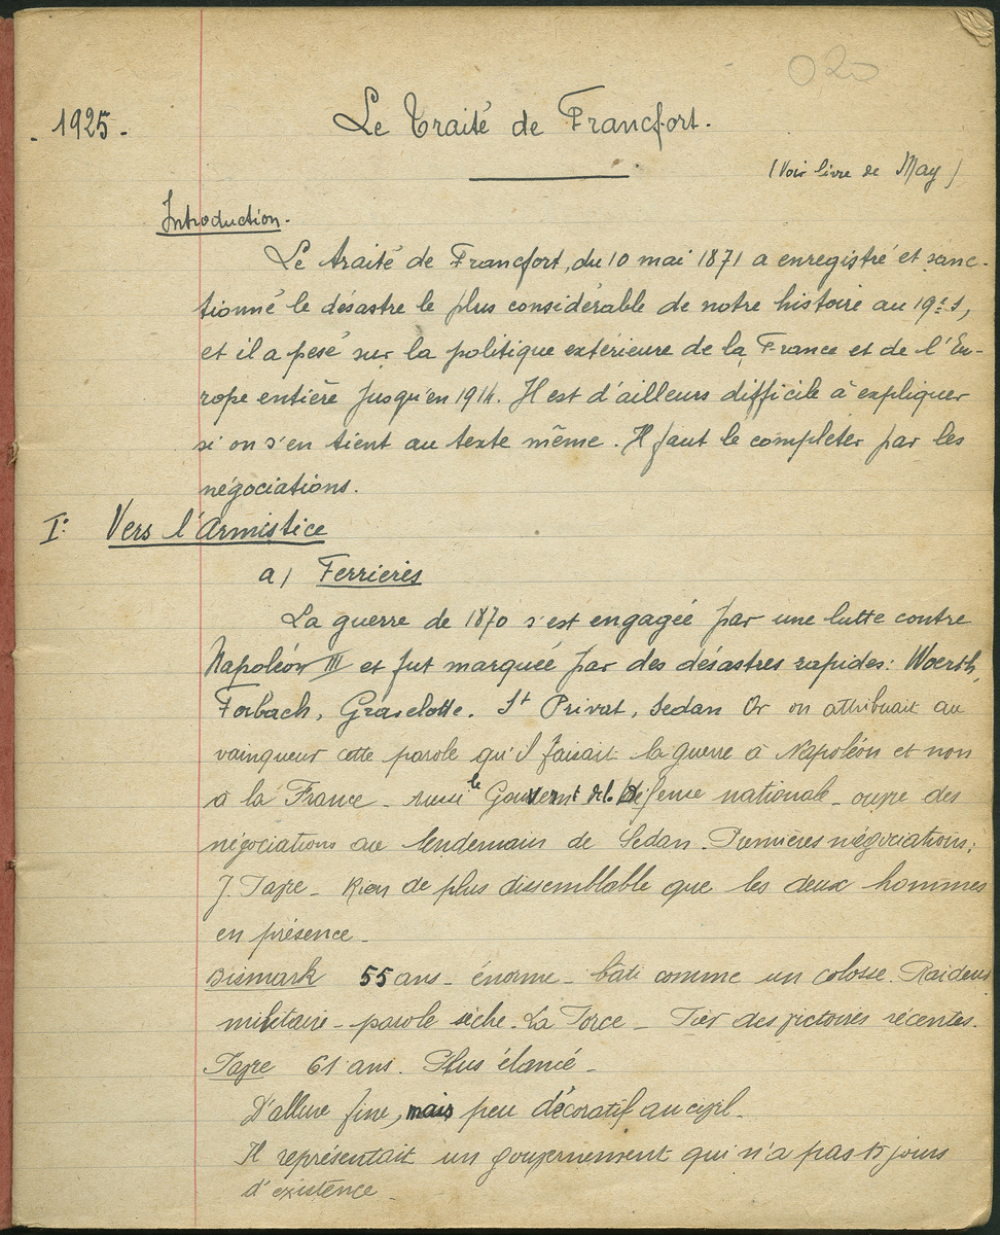 020
- 1925 -
Le Traité de Francfort.
(Voir livre de May)
Introduction.
Le traité de Francfort, du 10 mai 1871 a enregistré et sanc-
tionné le désastre le plus considérable de notre histoire au 19e s,
et il a pesé sur la politique extérieure de la France et de l'Eu-
rope entière jusqu'en 1914. Il est d'ailleurs difficile à expliquer
si on s'en tient au texte même. Il faut le compléter par les
négociations.
I° Vers l'Armistice
a) Ferrières
La guerre de 1870 s'est engagée par une lutte contre
Napoléon III et fut marquée par des désastres rapides: Woerth,
Forbach, Gravelotte. St Privat, Sedan Or on attribuait au
vainqueur cette parole qu'il faisait la guerre à Napoléon et non
à la France - aussi le Gouvernt de la Défense nationale - ouvre des
négociations au lendemain de Sedan. Premières négociations:
J. Favre - Rien de plus dissemblable que les deux hommes
en présence -
Bismark 55 ans - énorme - bâti comme un colosse. Raideur
militaire - parole sèche. La Force - Fier des victoires récentes.
Favre 61 ans. Plus élancé -
D'allure fine, mais peu décoratif au civil -
Il représentait un gouvernement qui n'a pas 15 jours
d'existence -